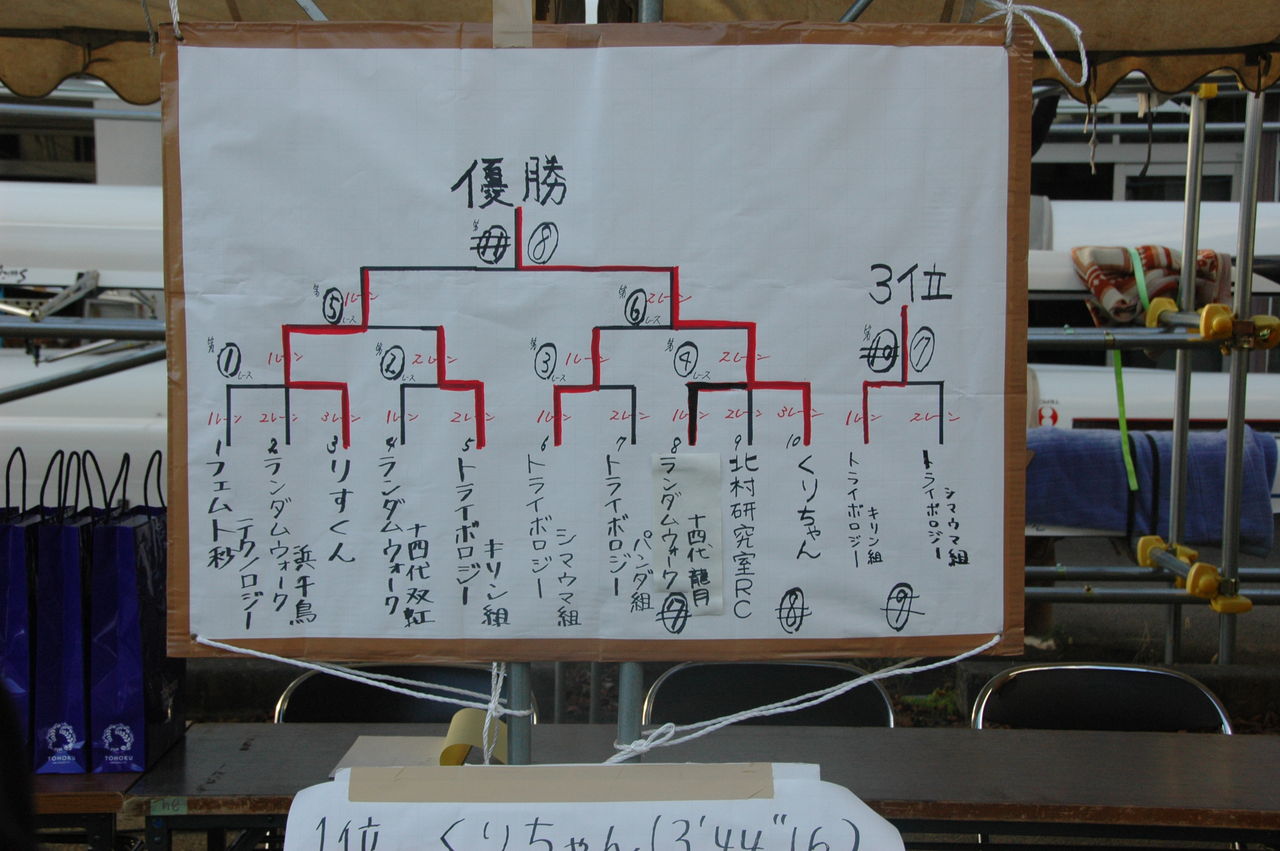 優勝
第 11 ⑧
3位
第⑤レース 1レーン
第⑥レース 2レーン
第 10 ⑦
第①レース 1レーン
第②レース 2レーン
第③レース 1レーン
第④レース 2レーン
1レーン 2レーン 3レーン 1レーン 2レーン 1レーン 2レーン 1レーン 2レーン 3レーン 1レーン 2レーン
1 フェムト秒テクノロジー
2 ランダムウォーク 浜千鳥
3 りすくん
4 ランダムウォーク 十四代双虹
5 トライボロジー キリン組
6 トライボロジー シマウマ組
7 トライボロジー パンダ組
8 ランダムウォーク 十四代龍月
9 北村研究室RC
10 くりちゃん
トライボロジー キリン組
トライボロジー シマウマ組
⑦ ⑧ ⑨
TOHOKU
TOHOKU
1位 くりちゃん (3'44"16)